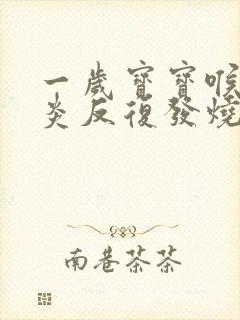 一歲寶寶喉
炎反復發燒
南巷茶茶